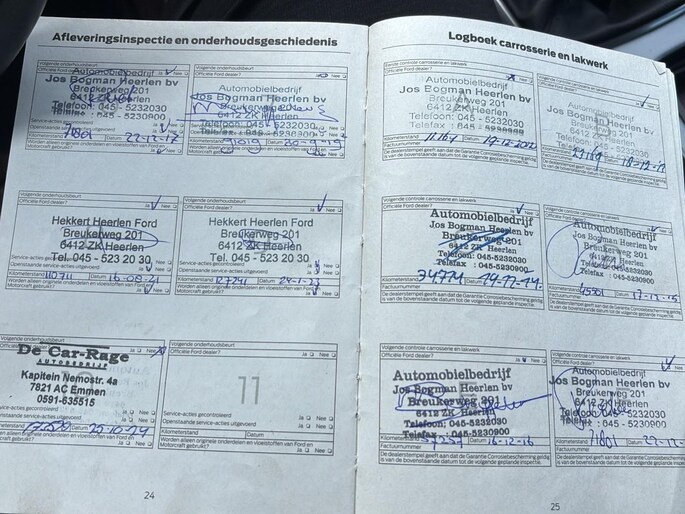 Afleveringsinspectie en onderhoudsgeschiedenis
Volgende onderhoudsbeurt
Officiële Ford dealer? Ja Nee
Automobielbedrijf
Jos Bogman Heerlen bv
Breukerweg 201
6412 ZK Heerlen
Telefoon: 045 - 5232030
Telefax : 045 - 5230900
Kilometerstand Datum 22-12-17
Worden alleen originele onderdelen en vloeistoffen van Ford en
Motorcraft gebruikt? Ja Nee
Volgende onderhoudsbeurt
Officiële Ford dealer? Ja Nee
Automobielbedrijf
Jos Bogman Heerlen bv
Breukerweg 201
6412 ZK Heerlen
Telefoon: 045 - 5232030
Telefax : 045 - 5230900
Kilometerstand Datum
Worden alleen originele onderdelen en vloeistoffen van Ford en
Motorcraft gebruikt? Ja Nee
Volgende onderhoudsbeurt
Officiële Ford dealer? Ja Nee
Hekkert Heerlen Ford
Breukerweg 201
6412 ZK Heerlen
Tel. 045 - 523 20 30
Service-acties gecontroleerd Ja Nee
Openstaande service-acties uitgevoerd Ja Nee
Kilometerstand 110711 Datum 16-08-21
Worden alleen originele onderdelen en vloeistoffen van Ford en
Motorcraft gebruikt? Ja Nee
Volgende onderhoudsbeurt
Officiële Ford dealer? Ja Nee
Hekkert Heerlen Ford
Breukerweg 201
6412 ZK Heerlen
Tel. 045 - 523 20 30
Service-acties gecontroleerd Ja Nee
Openstaande service-acties uitgevoerd Ja Nee
Kilometerstand 127241 Datum 24-1-23
Worden alleen originele onderdelen en vloeistoffen van Ford en
Motorcraft gebruikt? Ja Nee
Volgende onderhoudsbeurt
Officiële Ford dealer? Ja Nee
De Car-Rage
AUTOBEDRIJF
Kapitein Nemostr. 4a
7821 AC Emmen
0591-635515
Ja Nee
Ja Nee
Datum 25-10-24
Worden alleen originele onderdelen en vloeistoffen van Ford en
Motorcraft gebruikt? Ja Nee
Volgende onderhoudsbeurt
Officiële Ford dealer? Ja Nee
11
Service-acties gecontroleerd Ja Nee
Openstaande service-acties uitgevoerd Ja Nee
Kilometerstand Datum
Worden alleen originele onderdelen en vloeistoffen van Ford en
Motorcraft gebruikt? Ja Nee
24
Logboek carrosserie en lakwerk
Eerste controle carrosserie en lakwerk
Officiële Ford dealer? Ja Nee
Automobielbedrijf
Jos Bogman Heerlen bv
Breukerweg 201
6412 ZK Heerlen
Telefoon: 045 - 5232030
Telefax : 045 - 5230900
Kilometerstand Datum
Factuurnummer
De dealerstempel geeft aan dat de Garantie Corrosiebescherming geldig
is van de bovenstaande datum tot de volgende geplande inspectie.
Automobielbedrijf
Jos Bogman Heerlen bv
Breukerweg 201
6412 ZK Heerlen
Telefoon: 045 - 5232030
Telefax : 045 - 5230900
Volgende controle carrosserie en lakwerk
Officiële Ford dealer? Ja Nee
Automobielbedrijf
Jos Bogman Heerlen bv
Breukerweg 201
6412 ZK Heerlen
Telefoon: 045 - 5232030
Telefax : 045-5230900
Kilometerstand 34774 Datum
Factuurnummer
De dealerstempel geeft aan dat de Garantie Corrosiebescherming geldig
is van de bovenstaande datum tot de volgende geplande inspectie.
Automobielbedrijf
Jos Bogman Heerlen bv
Breukerweg 201
6412 ZK Heerlen
Telefoon: 045 - 5232030
Telefax : 045 - 5230900
Kilometerstand Datum 17-12-15
Factuurnummer
De dealerstempel geeft aan dat de Garantie Corrosiebescherming geldig
is van de bovenstaande datum tot de volgende geplande inspectie.
Volgende controle carrosserie en lakwerk
Officiële Ford dealer? Ja Nee
Automobielbedrijf
Jos Bogman Heerlen bv
Breukerweg 201
6412 ZK Heerlen
Telefoon: 045 - 5232030
Telefax : 045-5230900
Kilometerstand Datum 16-12-16
Factuurnummer
De dealerstempel geeft aan dat de Garantie Corrosiebescherming geldig
is van de bovenstaande datum tot de volgende geplande inspectie.
Volgende controle carrosserie en lakwerk
Officiële Ford dealer? Ja Nee
Automobielbedrijf
Jos Bogman Heerlen bv
Breukerweg 201
6412 ZK Heerlen
Telefoon: 045 - 5232030
Telefax : 045 - 5230900
Kilometerstand 71801 Datum
Factuurnummer
De dealerstempel geeft aan dat de Garantie Corrosiebescherming geldig
is van de bovenstaande datum tot de volgende geplande inspectie.
25